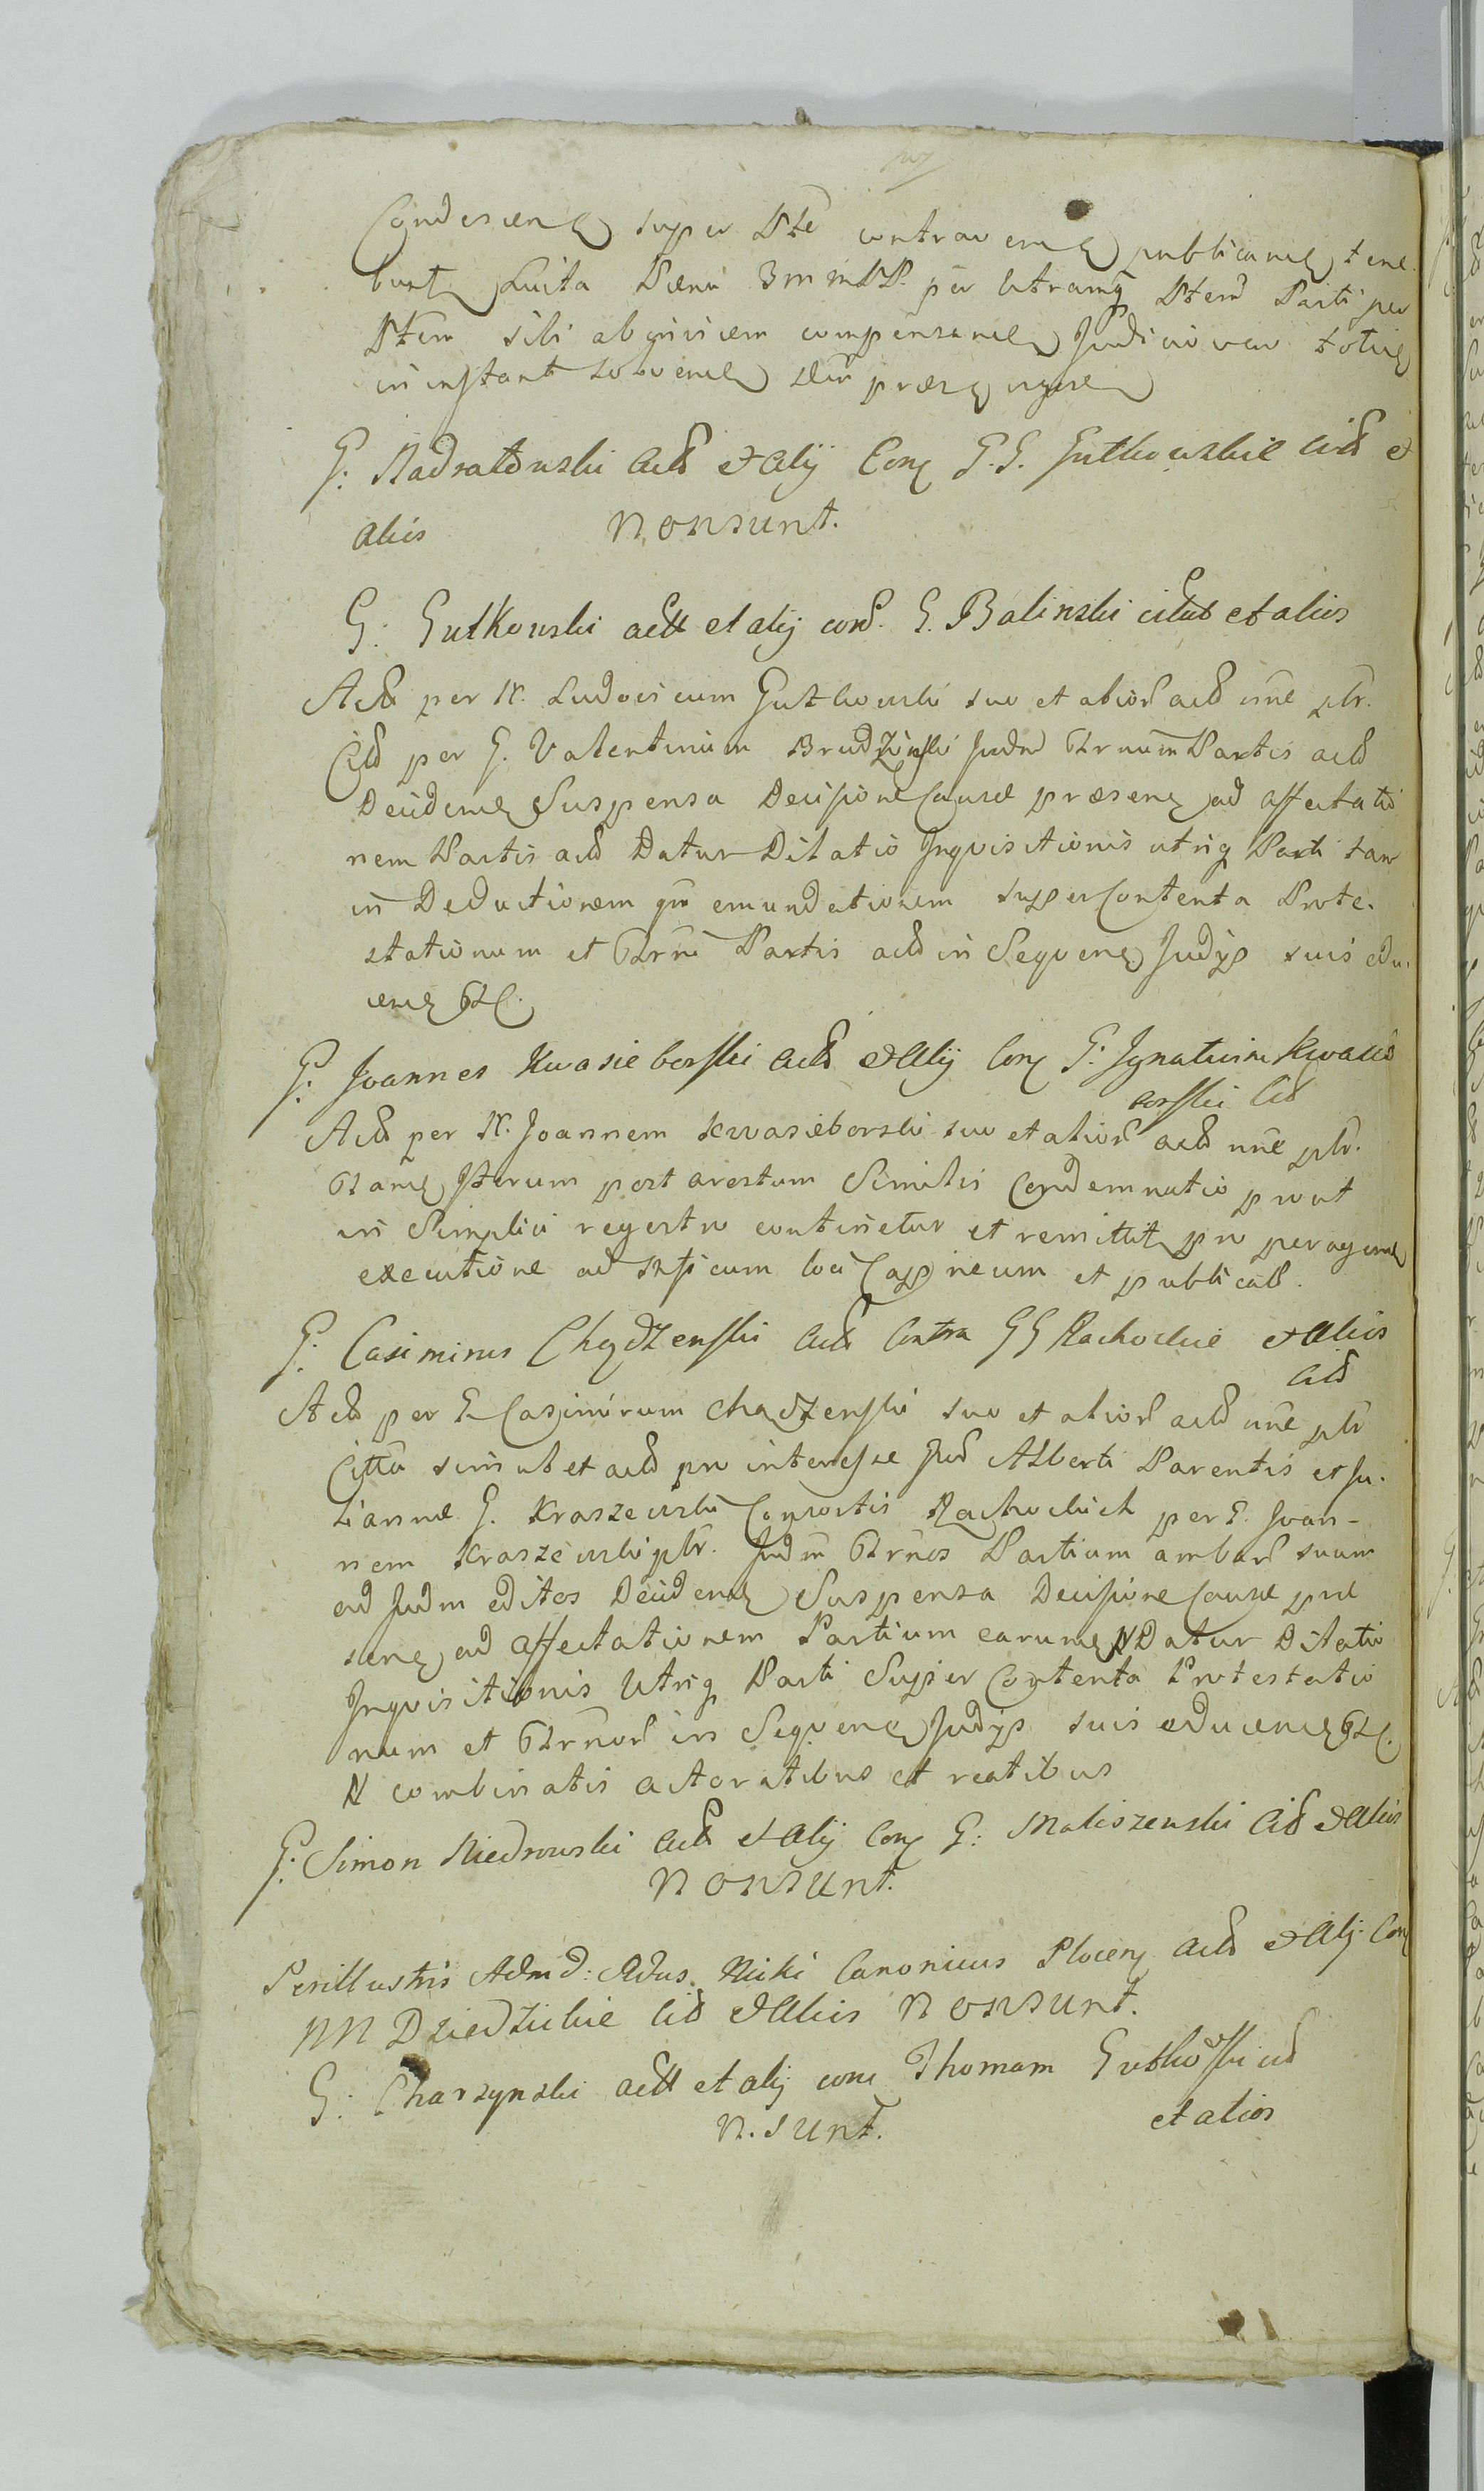 Condescen super Pte contraven publicane tene
bunt Luita Paena 3m mPP. per utramq Ptem Parti per
Ptem sibi ab invicem compensane Judicio vero totie
in instanti solvene
G. Nadratowski Actt et alij Con G.G. Gutkowskie Citt et
alios Nonsunt.
G. Gutkowski actt et alij con. G. Balinski citat et alios
Actt per N. Ludovicum Gutkowski suo et alior actt nne ptr.
Citt per G. Valentinum Brudzinski Judm Gr num Partis actt
Decidene Suspensa Decisione Causae praesen ad affectatio
nem Partis actt Datur Dilatio Inqvisitionis utriq Parti tam
in Deductionem qm emundationem super Contenta Prote.
stationum et Grni Partis actt in Seqvene Judijs suis edu.
cene etc.
G. Joannes Kwasieborski Actt et Alij Con G. Ignatium Kwasie
borski Citt
Actt per N. Joannem Kwasieborski suo et alior actt nne ptr.
iterum post arestum Similis Condemnatio prout
in Simplici regestro continetur et remittit pro peragene
executione ad loci Capneum et publicatt.
G. Casimirus Chądzenski Actt Contra GG Rachockie et Alios
Citt
Actt per G. Casimirum Chądzenski suo et alior actt nne ptr
Citta simul et actt pro interesse Alberti Parentis et Ju.
lianne G. Kraszewski Consortis Rachockich per G. Joan-
nem Kraszewski ptr. Judm Grnos Partium ambar suum
ad Judm editos Decidene Suspensa Decisione Causae prae
sene ad affectationem Partium earume N Datur Dilatio
Inqvisitionis Utriq Parti Super Contenta Protestatio
num et Grnor in Seqvene Judijs suis educene etc.
N combinatis actoratibus et reatibus
G. Simon Niedrowski Actt et Alij Con G: Maliszewski Citt et Alios
Nonsunt.
Perillustris Admd: Rdus Nicki Canonicus Plocen Actt et Alij Con
MM Dziedzickie Citt et Alios Nonsunt.
G. Charzynski actt et alij con Thomam Gutkowski citt
et alios
N. sunt.